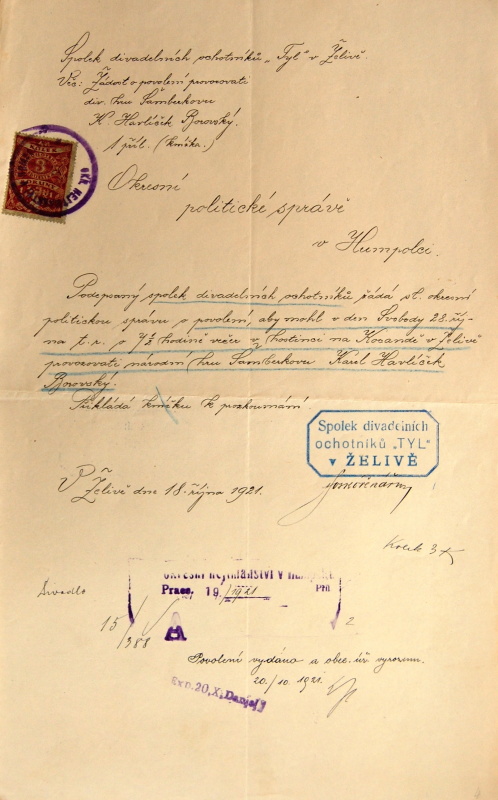 Spolek divadelních ochotníků „Tyl" v Želivě.
Věc: Žádost o povolení provozovati
div. hru Šamberkovu
K. Havlíček Borovský.
1 příl. (knížka.)
Okresní
politické správě
v Humpolci.
Podepsaný spolek divadelních ochotníků žádá sl. okresní
politickou správu o povolení, aby mohl v den Svobody 28. říj-
na t. r. o 7½ hodině večer v hostinci na Kocandě v Želivě
provozovati národní hru Šamberkovu Karel Havlíček
Borovský.
Přikládá knížku k prozkoumání.
Spolek divadelních
ochotníků „TYL"
v ŽELIVĚ
V Želivě dne 18. října 1921.
Kolek 3
Divadlo
OKRESNÍ HEJTMANSTVÍ V
Praes. 19./ 1921 Příl.
15/388
2
A
Povolení vydáno a obec. úř. vyrozum.
20./10. 1921.
Exp. 20. X.